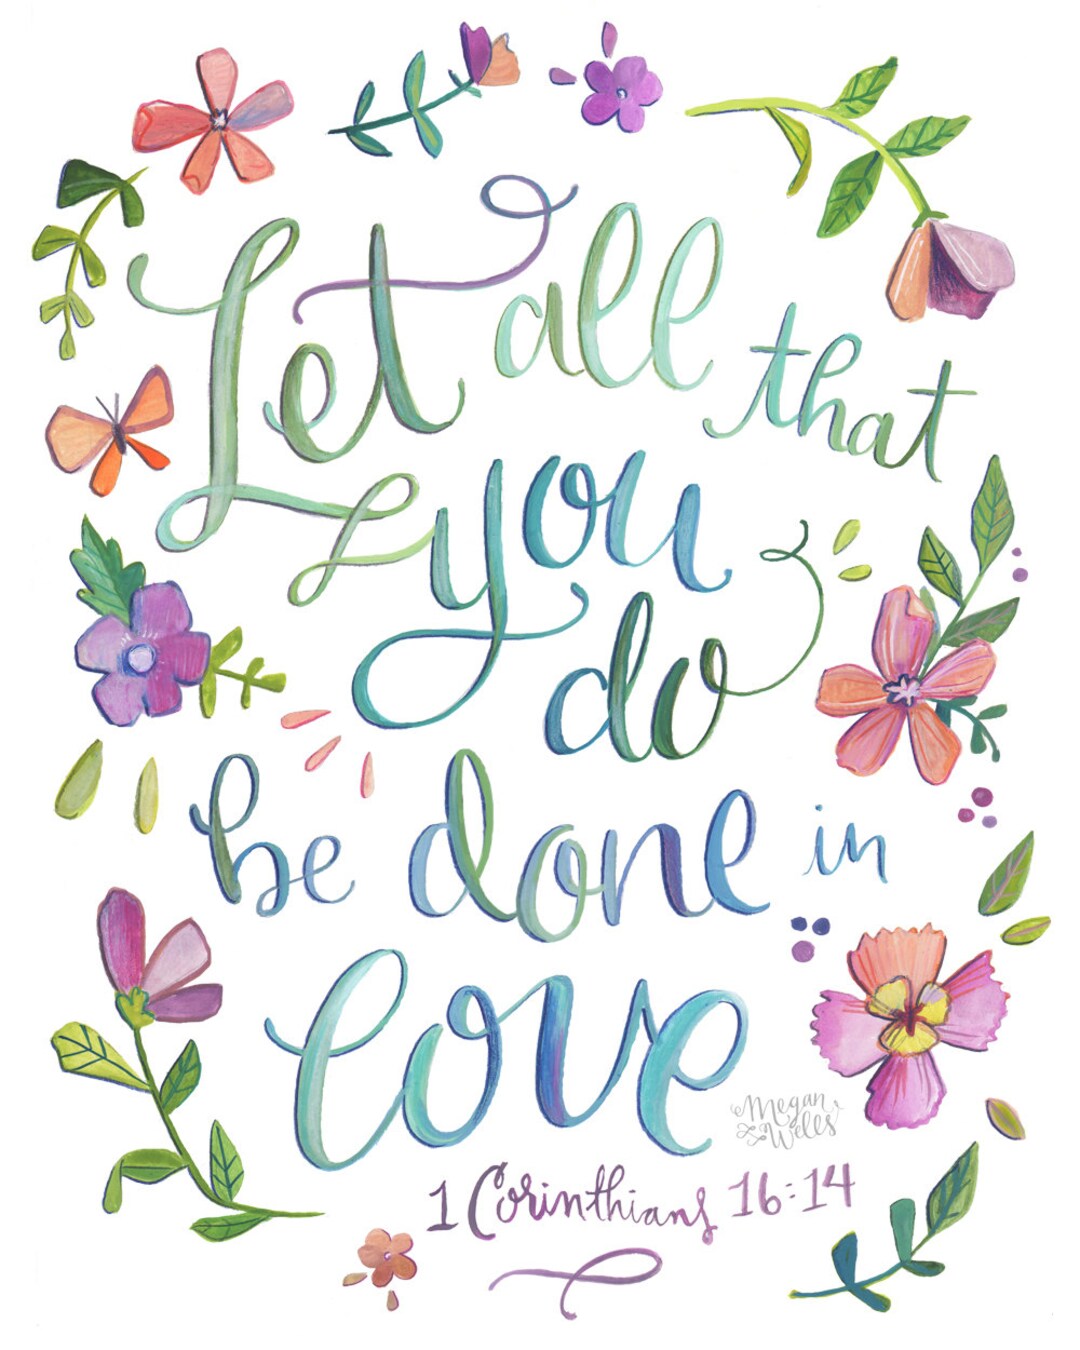 Let all that
you
do
be done in
love
Megan
Wells
1 Corinthians 16:14